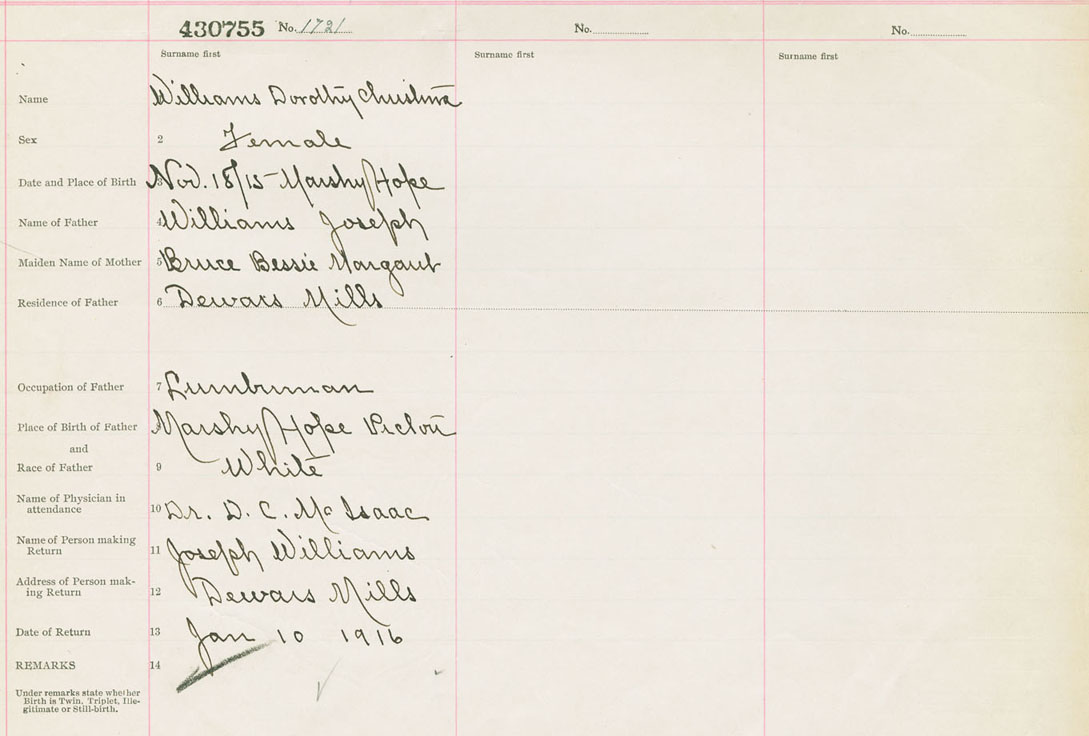 430755 No. 1721 No. No.
Surname first Surname first Surname first
Name Williams Dorothy Christina
Sex 2 Female
Date and Place of Birth 3 Nov. 18/15 - Marshy Hope
Name of Father 4 Williams Joseph
Maiden Name of Mother 5 Bruce Bessie Margaret
Residence of Father 6 Dewars Mills
Occupation of Father 7 Lumberman
Place of Birth of Father Marshy Hope Pictou
and
Race of Father 9 White
Name of Physician in
attendance 10 Dr. D. C. McIsaac
Name of Person making
Return 11 Joseph Williams
Address of Person mak-
ing Return 12 Dewars Mills
Date of Return 13 Jan 10 1916
REMARKS 14
Under remarks state whether
Birth is Twin. Triplet, Ille-
gitimate or Still-birth.